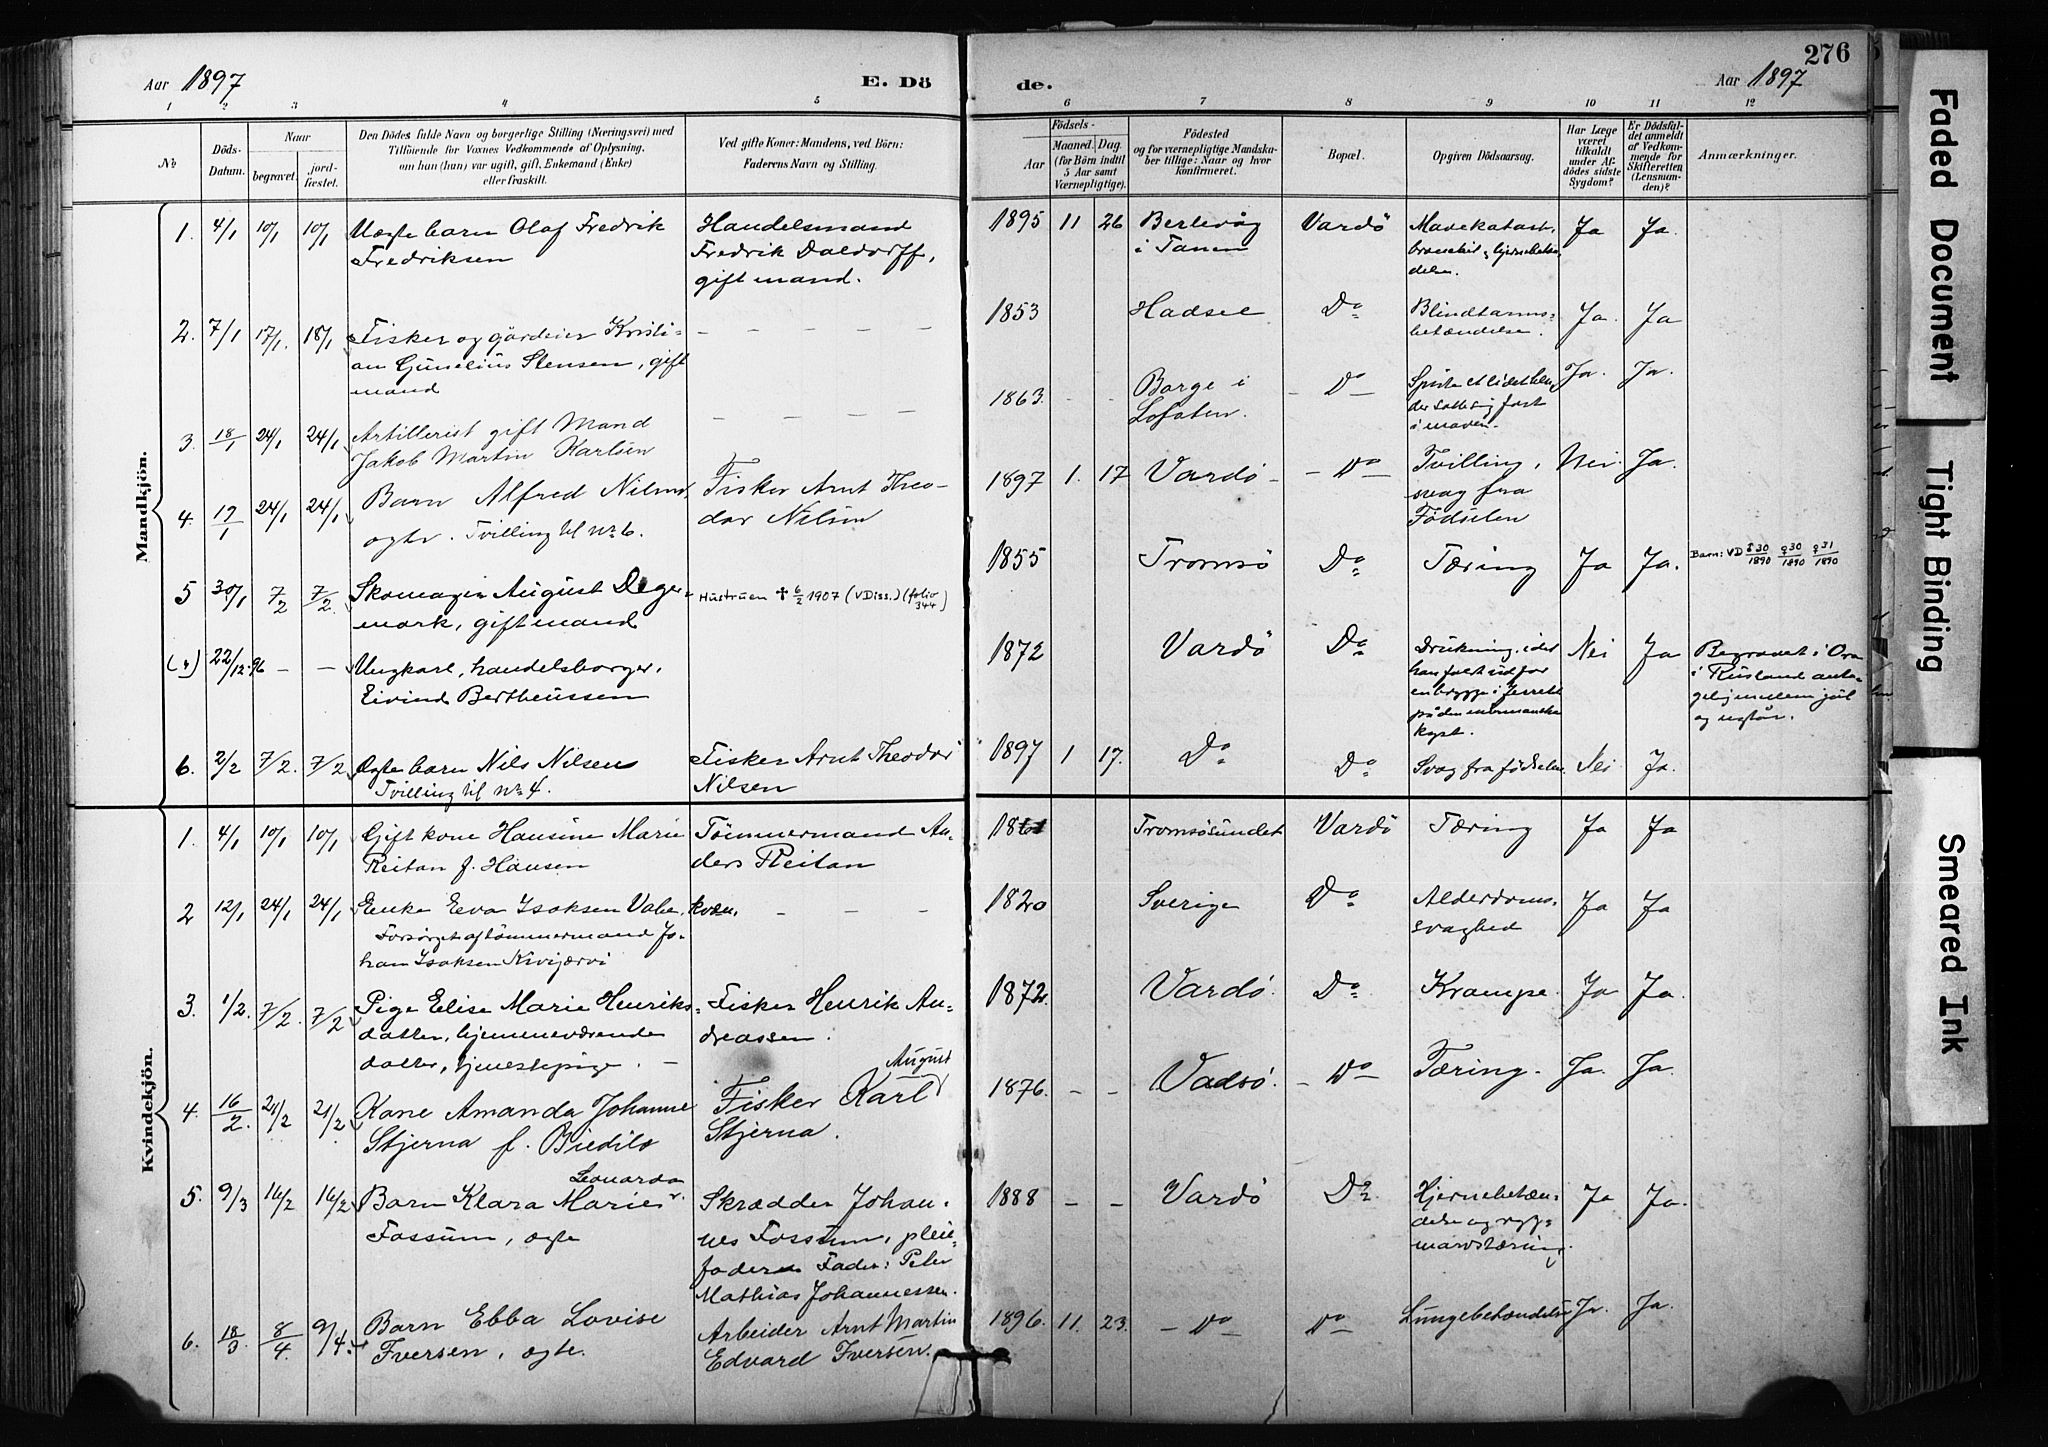 Aar 1897
E. Dö
de.
276
Aar 1897
1 2 3 4 5 6 7 8 9 10 11 12
No
Döds-Datum.
Naar
begravet.
jord-fæstet.
Den Dödes fulde Navn og borgerlige Stilling (Næringsvei) med
Tilföiende for Voxnes Vedkommende af Oplysning,
om hun (han) var ugift, gift, Enkemand (Enke)
eller fraskilt.
Ved gifte Koner: Mandens, ved Börn:
Faderens Navn og Stilling.
Födsels-
Aar
Maaned. Dag.
(for Börn indtil
5 Aar samt
Værnepligtige).
Födested
og for værnepligtige Mandska-
ber tillige: Naar og hvor
konfirmeret.
Bopæl.
Opgiven Dödsaarsag.
Har Læge
været
tilkaldt
under Af-
dödes sidste
Sygdom?
Er Dödsfal-
det anmeldt
af Vedkom-
mende for
Skifteretten
(Lensman-
den)?
Anmærkninger.
Mandkjön.
1. 4/1 10/1 10/1 Uægte barn Olaf Fredrik Handelsmand 1895 11 26 Berlevåg Vardö Mavekatarr, Ja Ja.
Fredriksen Fredrik Daldorff, i Tanen
gift mand.
2. 7/1 17/1. 18/1 Fisker og gårdeier Kristi- – – – – – 1853 Hadsel Do Blindtarms- Ja. Ja
an Gunelius Stensen, gift betændelse.
mand
3. 18/1 24/1 24/1 Artillerist gift Mand – – – – 1863. - - Borge i – Do – Ja. Ja.
Jakob Martin Karlsen Lofoten. i maven.
4. 19/1 24/1 24/1 Barn Alfred Nilsen, Fisker Arnt Theo- 1897 1. 17 Vardö – – Do – Tvilling, Nei. Ja.
ægte. Tvilling til No 6. dor Nilsen svag fra
Födselen
5 30/1 7/2 7/2. Skomager August Deger- Hustruen ✝ 6/2 1907 (VDiss.) (folio 344) 1855 Tromsö Do Tæring Ja Ja. Barn: VD ♀30/1890 ♀30/1890 ♀31/1890
mark, gift mand
22/12.96 – – Ungkarl, handelsborger, 1872 Vardö Do Drukning, idet Nei Ja Begravet i Ora
Eivind Bertheussen han faldt ud for i Rusland anta-
en brygge i gelig mellem jul
på den murmanske og nytår.
kyst.
6. 2/2 7/2. 7/2 Ægte barn Nils Nilsen Fisker Arnt Theodor 1897 1 17. Do Do Svag fra födselen. Nei Ja.
Tvilling til No 4. Nilsen
Kvindekjön.
1. 4/1 10/1 10/1 Gift kone Hansine Marie Tömmermand An- Tromsösundet Vardö Tæring Ja Ja
Reitan f. Hansen ders Reitan
2 12/1 24/1 24/1 Enke Eeva Isaksen kvæn. – – – 1820 Sverige Do Alderdoms- Ja Ja
Forsörget af tömmermand Jo- svaghed
han Isaksen Kivijærvi
3. 1/2. 7/2. 7/2 Pige Elise Marie Henriks- Fisker Henrik An- 1872. Vardö. Do Krampe. Ja Ja.
datter, hjemmeværende dreassen.
datter, tjenestepige. –
August
4. 16/2 21/2 21/2 Kone Amanda Johanne Fisker Karl 1876. – – Vadsö. – Do – Tæring. Ja. Ja.
Stjerna f. Biedilo Stjerna.
Leonarda
5. 9/3 16/2 16/2 Barn Klara Marie Skrædder Johan- 1888 – – Vardö Do. Hjernebetæn- Ja Ja.
Fossum, ægte nes Fossum, pleie- delse og ryg-
fader. Fader: Peter marvstæring.
Mathias Johannessen.
6. 18/3. 8/4. 9/4. Barn Ebba Lovise Arbeider Arnt Martin 1896. 11. 23. – Do – Do Lungebetændelse Ja. Ja.
Iversen, ægte. Edvard Iversen.
Faded Document
Tight Binding
Smeared Ink